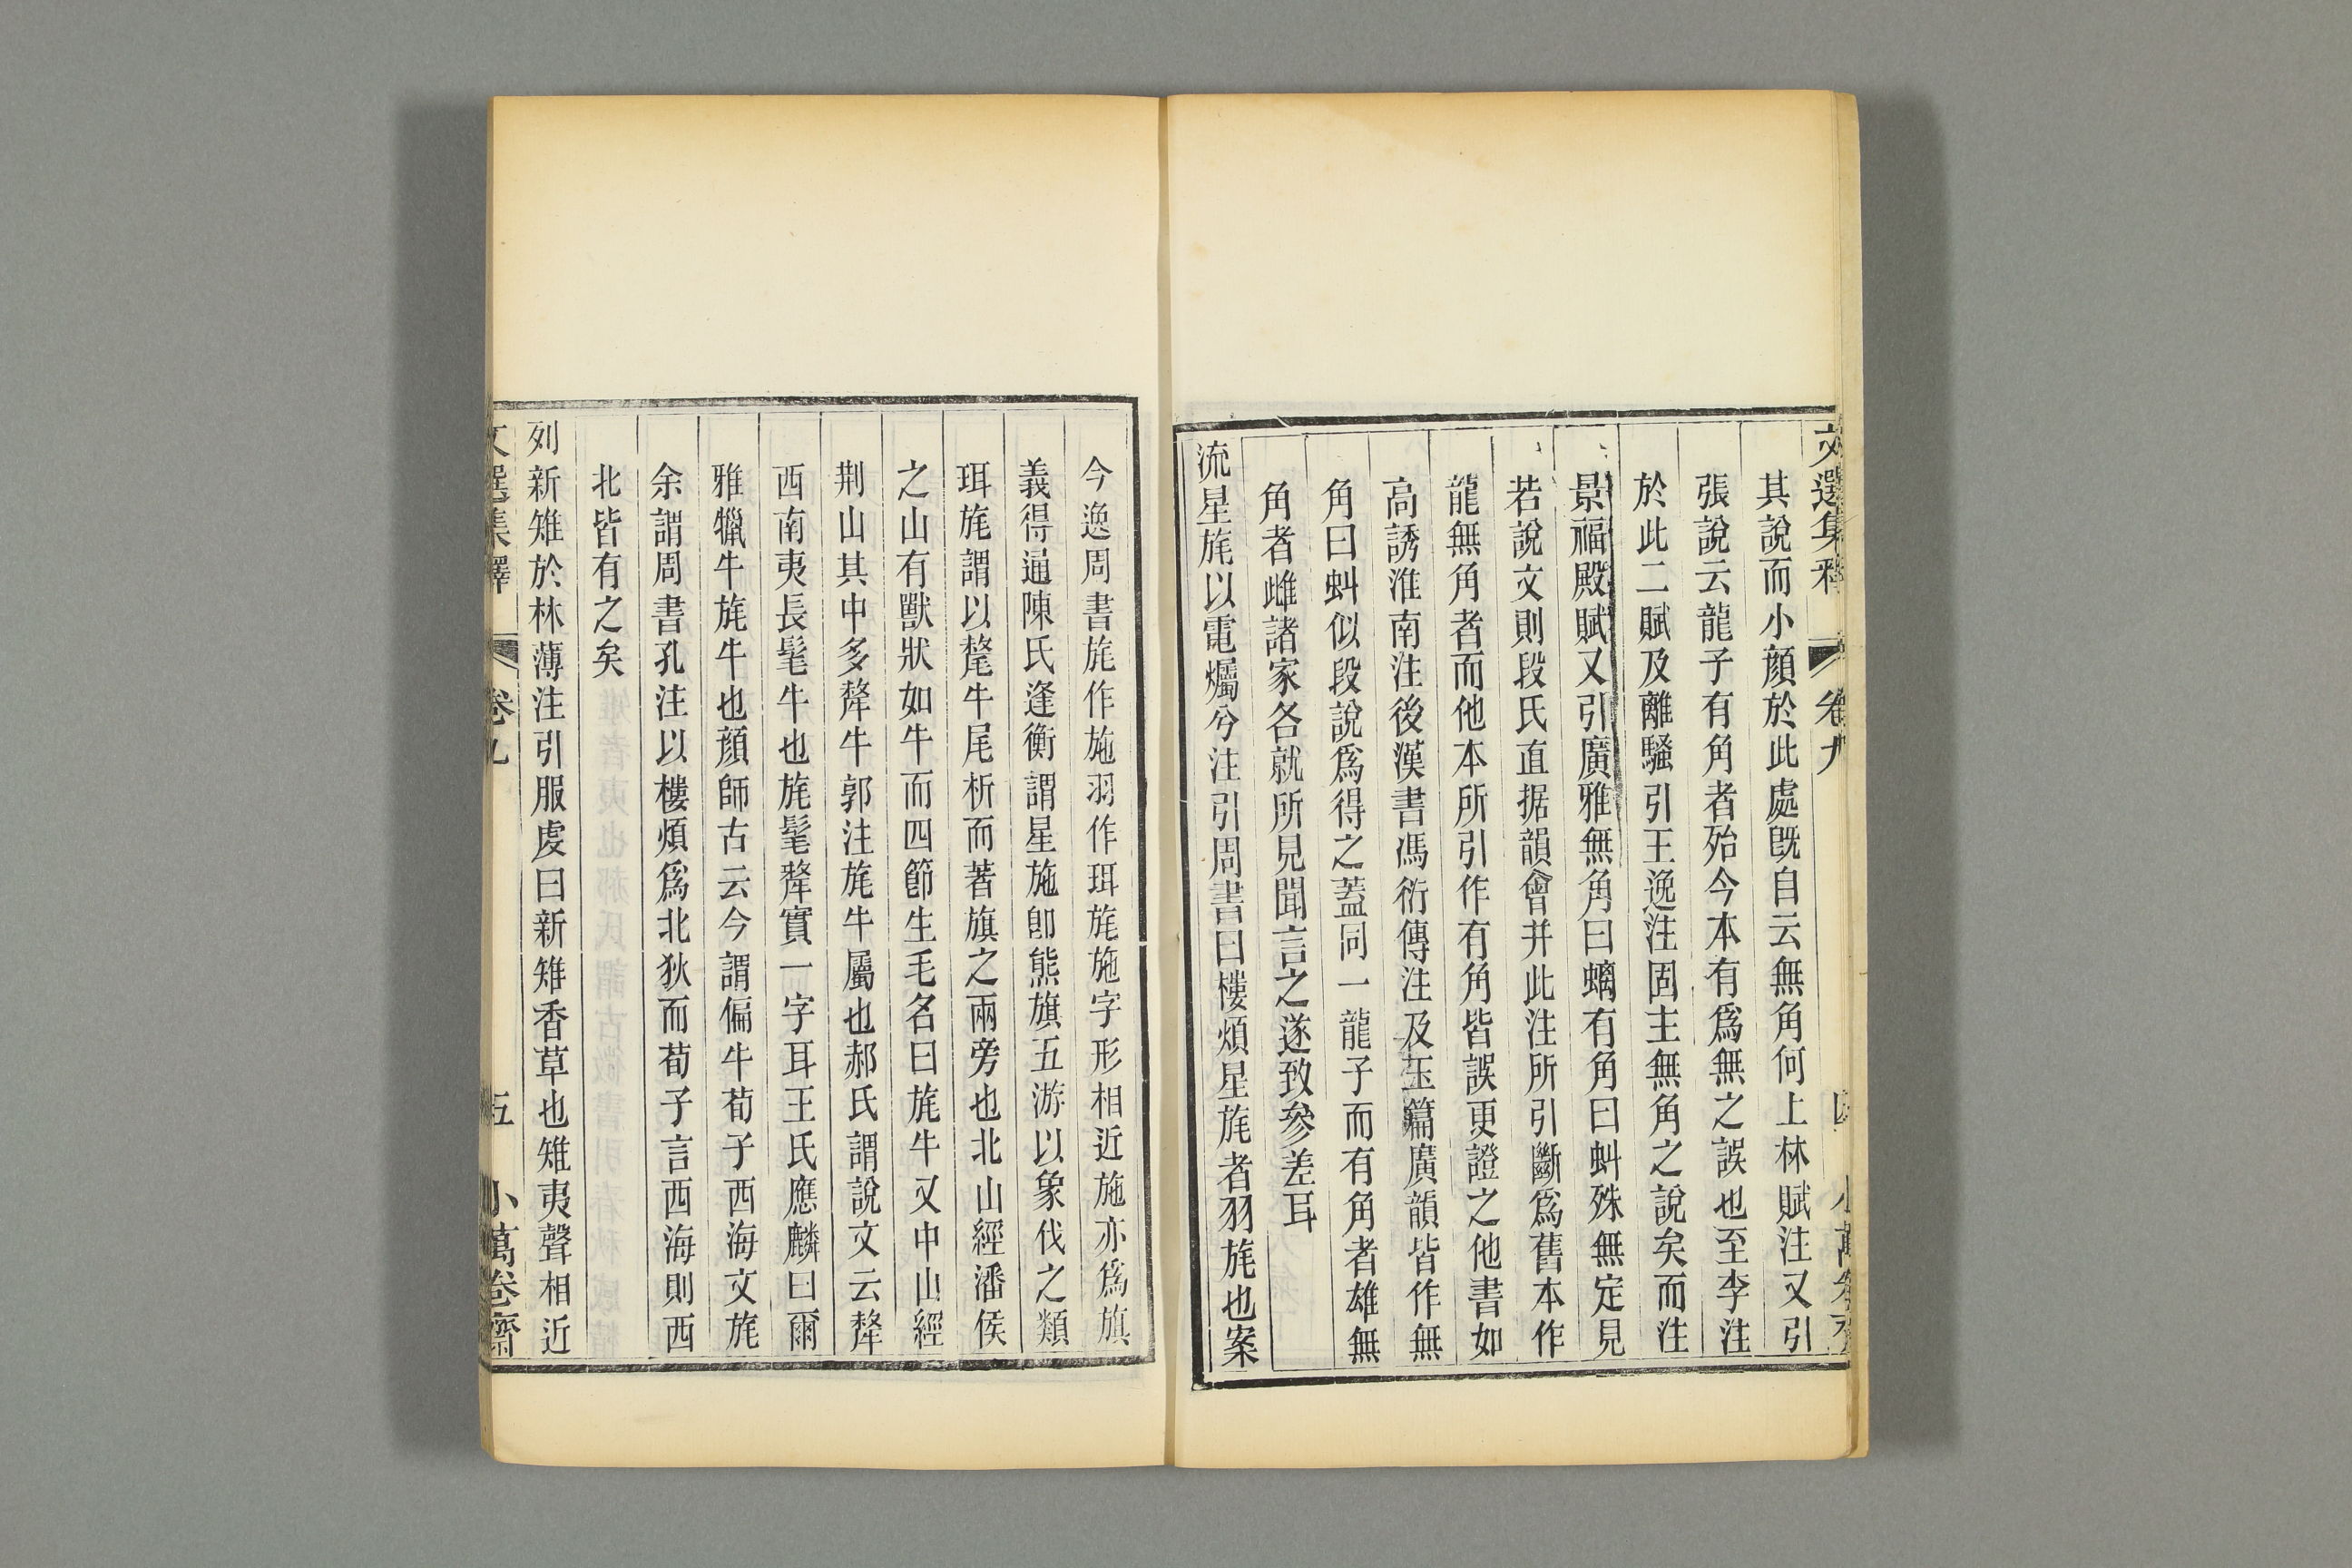 文選集釋 卷九 四 小萬卷齋
其說而小顏於此處旣自云無角何上林賦注又引
張說云龍子有角者殆今本有爲無之誤也至李注
於此二賦及離騷引王逸注固主無角之說矣而注
景福殿賦又引廣雅無角曰螭有角曰虯殊無定見
若說文則段氏直据韻會并此注所引斷爲舊本作
龍無角者而他本所引作有角皆誤更證之他書如
高誘淮南注後漢書馮衍傳注及玉篇廣韻皆作無
角曰虯似段說爲得之蓋同一龍子而有角者雄無
角者雌諸家各就所見聞言之遂致參差耳
流星旄以電爥兮注引周書曰樓煩星旄者羽旄也案
今逸周書旄作施羽作珥旄施字形相近施亦爲旗
義得通陳氏逢衡謂星施卽熊旗五游以象伐之類
珥旄謂以氂牛尾析而著旗之兩旁也北山經潘侯
之山有獸狀如牛而四節生毛名曰旄牛又中山經
荆山其中多犛牛郭注旄牛屬也郝氏謂說文云犛
西南夷長髦牛也旄髦犛實一字耳王氏應麟曰爾
雅犣牛旄牛也顏師古云今謂偏牛荀子西海文旄
余謂周書孔注以樓煩爲北狄而荀子言西海則西
北皆有之矣
列新雉於林薄注引服虔曰新雉香草也雉夷聲相近
文選集釋 卷九 五 小萬卷齋